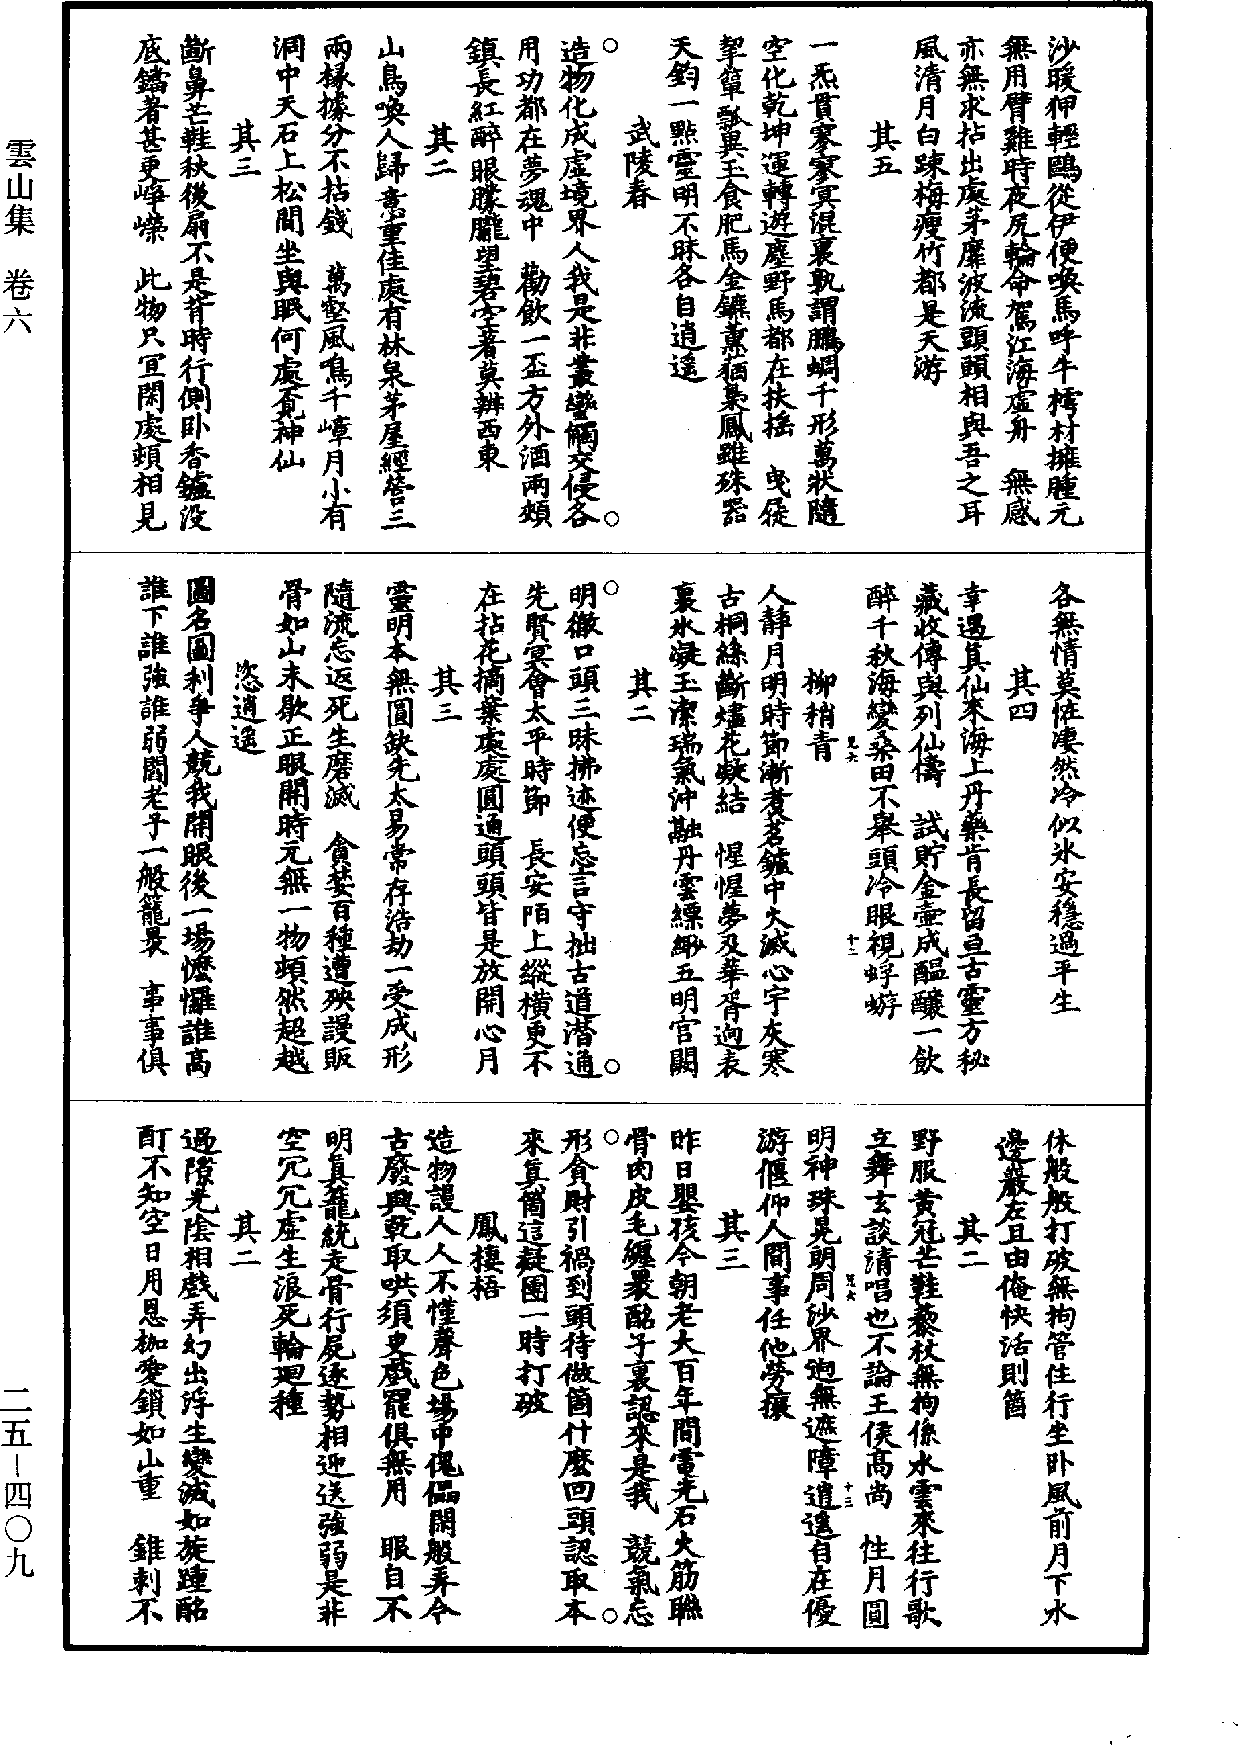 沙暖狎輕鷗從伊便喚馬呼牛樗材擁腫元
無用臂雞時夜尻輪命駕江海虛舟　無感
亦無求拈出處茅靡波流頭頭相與吾之耳
風清月白踈梅瘦竹都是天游
其五
一炁貫寥寥冥混裏孰謂鵬蜩千形萬狀隨
空化乾坤運轉遊塵野馬都在扶搖　曵屣
挈簞瓢異玉食肥馬金鑣薰蕕梟鳳雖殊器
天鈞一點靈明不昧各自逍遥
武陵春
造物化成虛境界人我是非叢蠻觸交侵各
用功都在夢魂中　勸飲一盃方外酒兩頰
鎮長紅醉眼朦朧望碧空著莫辨西東
其二
山鳥喚人歸意重佳處有林泉茅屋經營三
兩椽據分不拈錢　萬壑風鳥千嶂月小有
洞中天石上松間坐與眠何處覔神仙
其三
斷鼻芒鞋秋後扇不是背時行側卧香鑪没
底鐺著甚更崢嶸　此物只宜閑處頓相見
各無情莫恠凄然冷似氷安穩過平生
其四
幸遇真仙來海上丹藥肯長留亘古靈方秘
藏收傳與列仙儔　試貯金壷成醖釀一飲
醉千秋海變桑田不舉頭冷眼視蜉蝣
柳梢青
人靜月明時節漸煑茗鑪中火滅心宇灰寒
古桐絲斷燼花凝結　惺惺夢及華胥迥表
裏氷凝玉潔瑞氣沖融丹雲縹緲五明宫闕
其二
明徹口頭三昧拂迹便忘言守拙古道潜通
先賢冥會太平時節　長安陌上縱橫更不
在拈花摘葉處處圓通頭頭皆是放開心月
其三
靈明本無圓缺先太易常存浩劫一受成形
隨流忘返死生磨滅　貪婪百種遭殃謾販
骨如山未歇正眼開時元無一物頓然超越
恣逍遥
圖名圖利爭人競我開眼後一場懡㦬誰高
誰下誰強誰弱閻老子一般籠罬　事事俱
休般般打破無拘管住行坐卧風前月下水
邊巖左且由俺快活則箇
其二
野服黄冠芒鞋藜杖無拘係水雲來往行歌
立舞玄談清唱也不論王侯高尚　性月圓
明神珠晃朗周沙界迥無遮障逍遥自在優
游偃仰人間事任他勞攘
其三
昨日嬰孩今朝老大百年間電光石火筋聯
骨肉皮毛纏裹酩子裏認來是我　競氣忘
形貪財引禍到頭待做箇什麽回頭認取本
來真箇這凝團一時打破
鳳棲梧
造物謾人人不懂聲色場中傀儡閑般弄今
古廢興乾取哄須㬰戲罷俱無用　眼自不
明真籠統走骨行屍逐勢相迎送強弱是非
空冗冗虛生浪死輪廽種
其二
過隙光陰相戲弄幻出浮生變滅如旋踵酩
酊不知空日用恩枷愛鎖如山重　錐刺不
雲山集　卷六
二五—四〇九